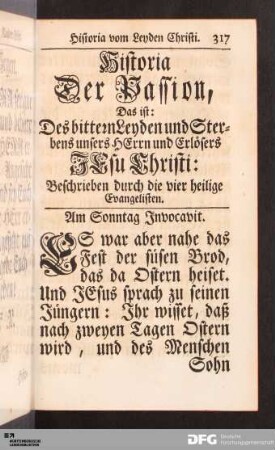 Historia vom Leyden Christi. 317
Historia
Der Passion,
Das ist:
Des bittern Leyden und Ster-
bens unsers HErrn und Erlösers
JEsu Christi:
Beschrieben durch die vier heilige
Evangelisten.
Am Sonntag Invocavit.
ES war aber nahe das
Fest der süsen Brod,
das da Ostern heiset.
Und JEsus sprach zu seinen
Jüngern: Ihr wisset, daß
nach zweyen Tagen Ostern
wird, und des Menschen
Sohn
DFG